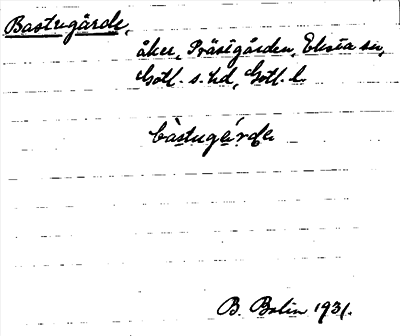 Bastugårde,
åker, Prästgården, Eksta sn,
Gotl. s. hd, Gotl. l.
bàstugárdє
B. Bolin 1931.